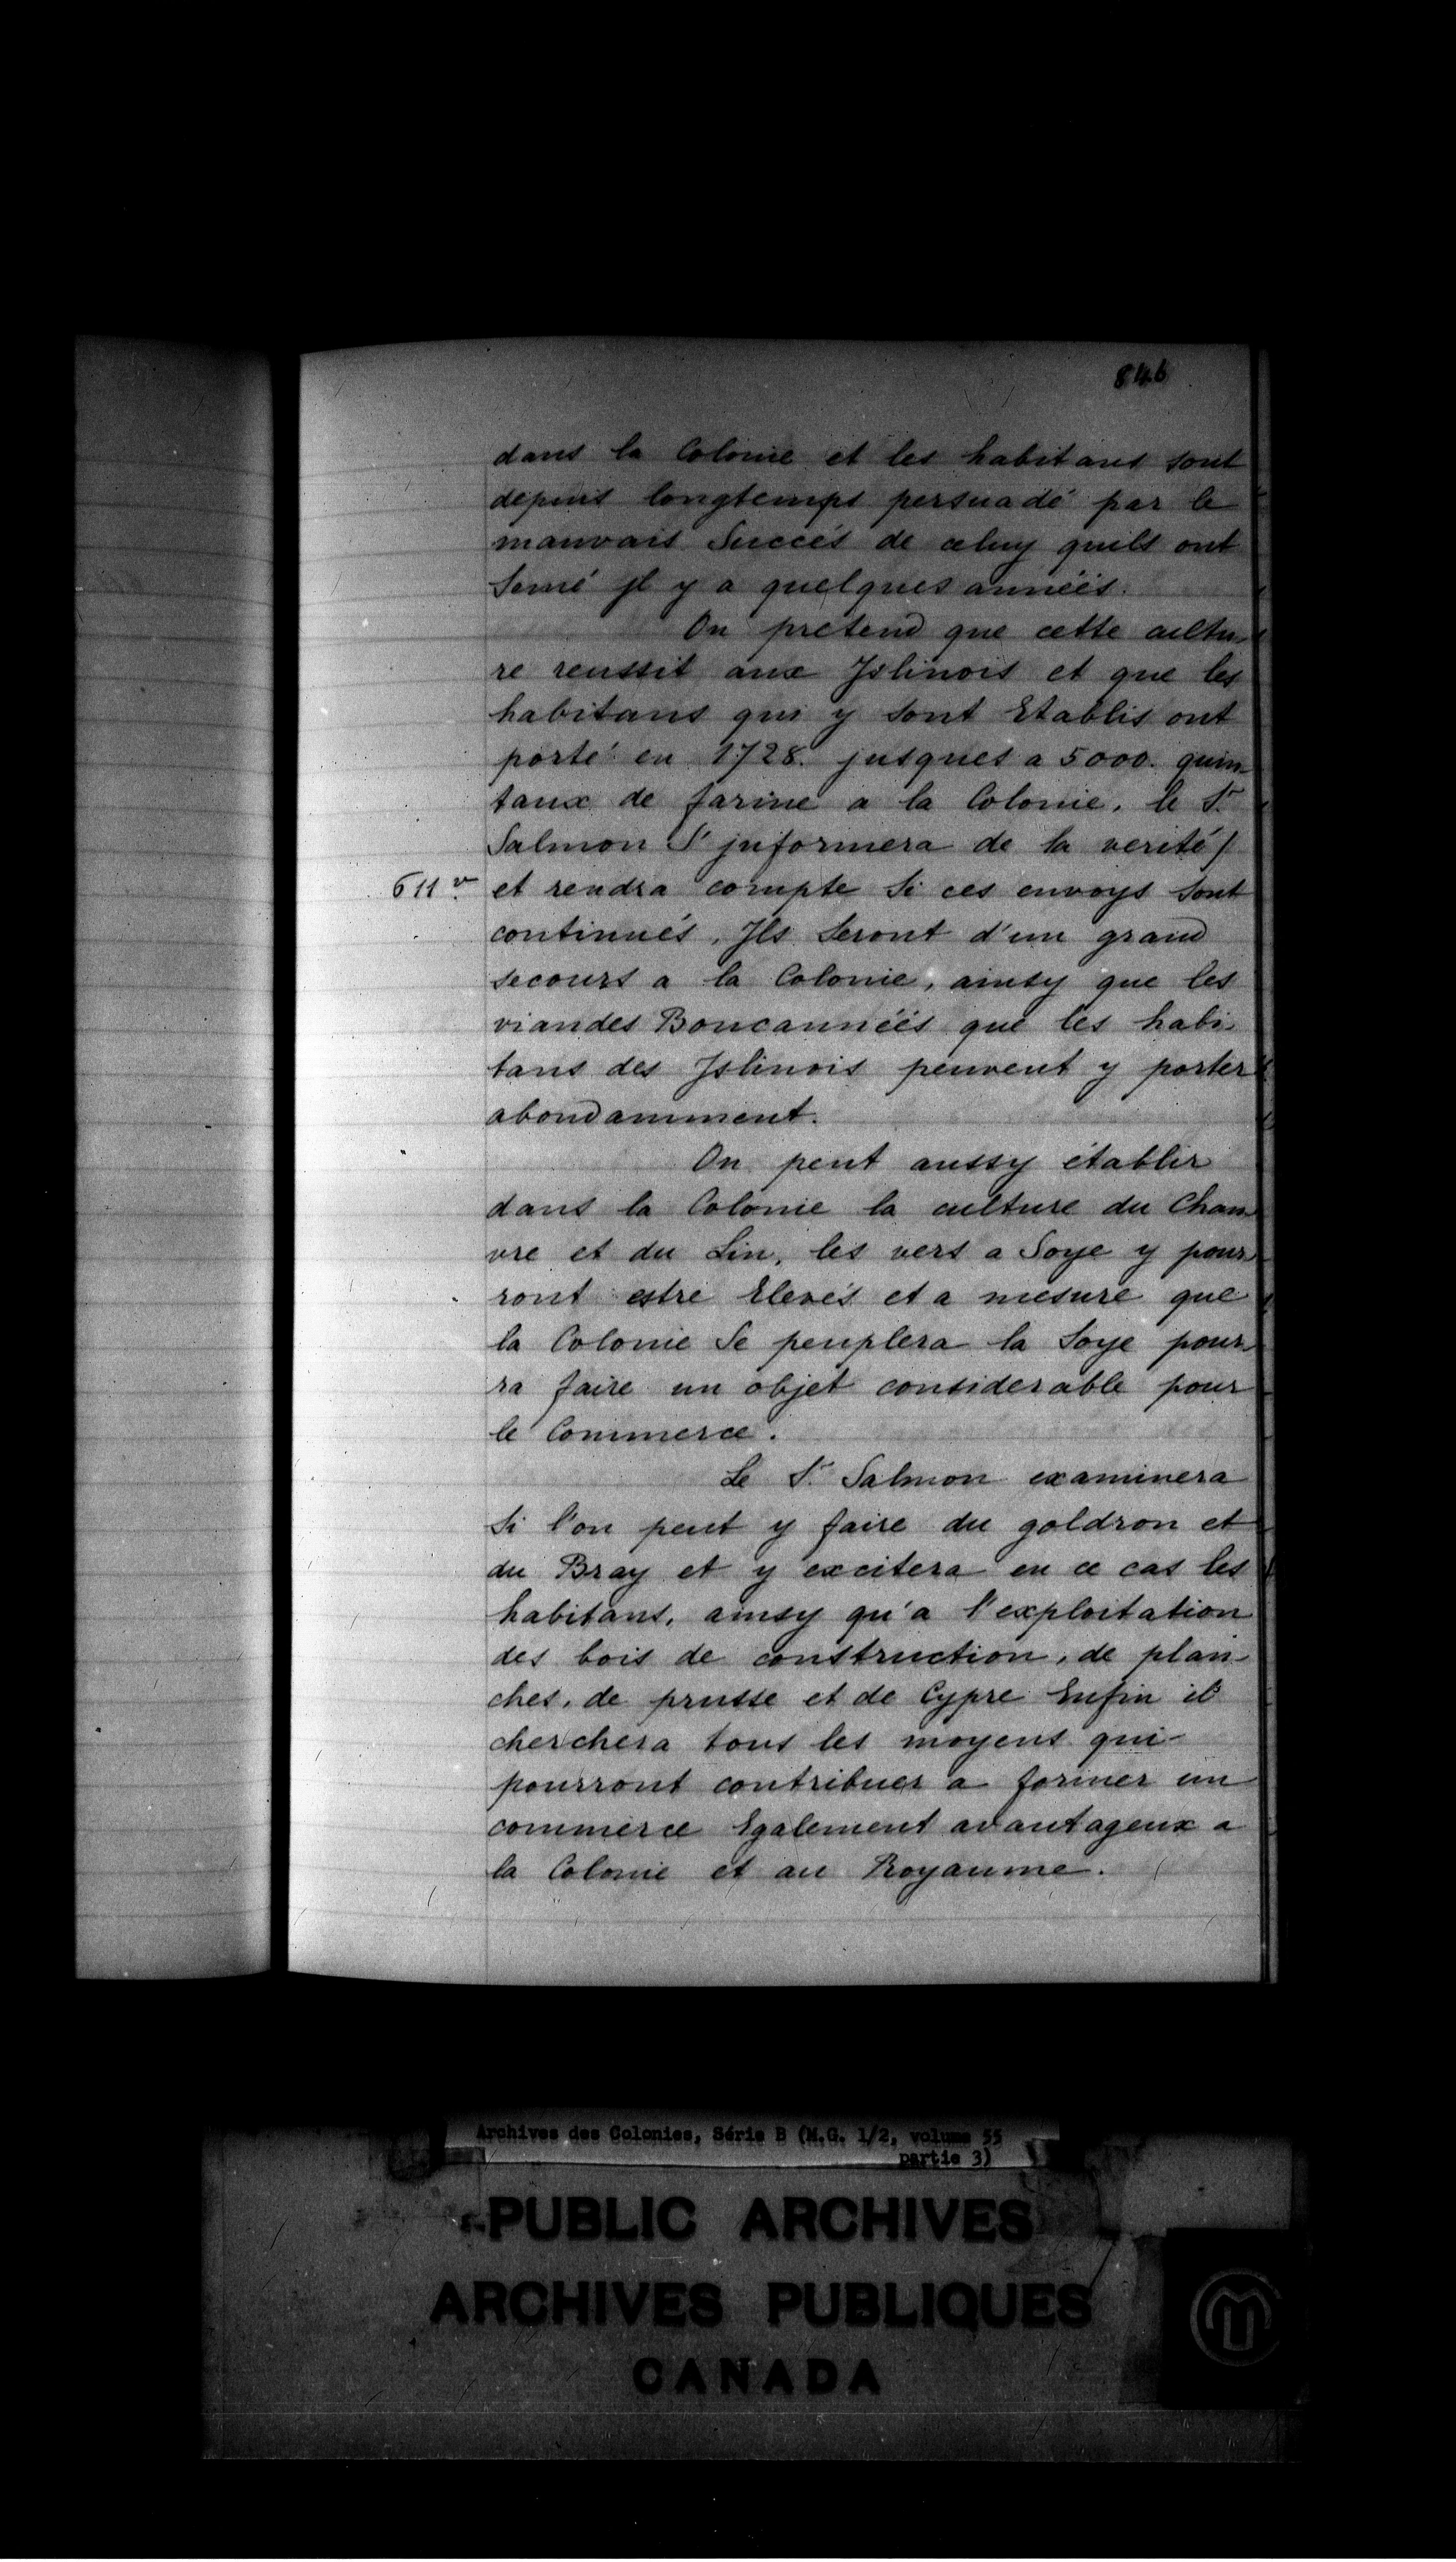 846
dans la Colonie et les habitans sont
depuis longtemps persuadé par le
mauvais Succés de celuy quils ont
Semé jl y a quelques annéés.
On pretend que cette cultu-
re reussit aux Jslinois et que les
habitans qui y sont Etablis ont
porté en 1728. jusques a 5000. quin-
taux de farine a la Colonie. le Sr.
Salmon S'jnformera de la verité/
611v. et rendra compte Si ces envoys sont
continués, Jls Seront d'un grand
secours a la Colonie, ainsy que les
viandes Boucannéés que les habi-
tans des Jslinois peuvent y porter
abondamment.
On peut aussy établir
dans la Colonie la culture du Chan-
vre et du Lin, les vers a Soye y pour-
ront estre Elevés et a mesure que
la Colonie Se peuplera la Soye pour-
ra faire un objet considerable pour
le Commerce.
Le Sr. Salmon examinera
Si l'on peut y faire du goldron et
du Bray et y excitera en ce cas les
habitans, ainsy qu'a l'exploitation
des bois de construction, de plan-
ches, de prusse et de Cypre Enfin il
cherchera tous les moyens qui
pourront contribuer a former un
commerce Egalement avantageux a
la Colonie et au Royaume.
Archives des Colonies, Série B (M.G. 1/2, volume 55
partie 3)
PUBLIC ARCHIVES
ARCHIVES PUBLIQUES
CANADA